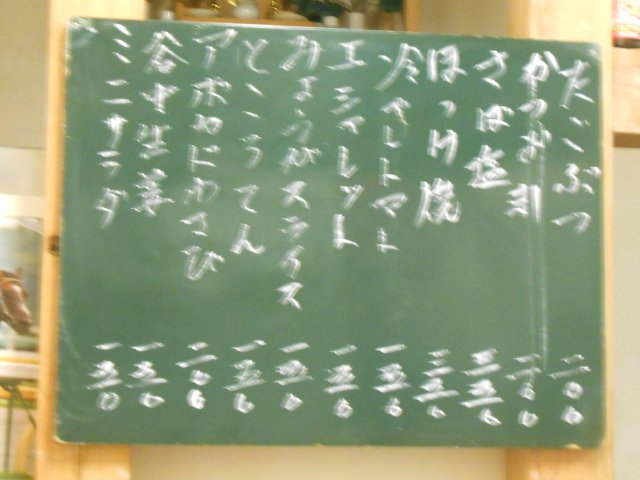 たこぶつ 二〇〇
かつお刺 二〇〇
さば塩 三五〇
ほっけ焼 三五〇
冷やしトマト 一五〇
エシャレット 一五〇
みょうがスライス 一五〇
ところてん 一五〇
アボカドわさび 二〇〇
谷中生姜 一五〇
ミニサラダ 一五〇